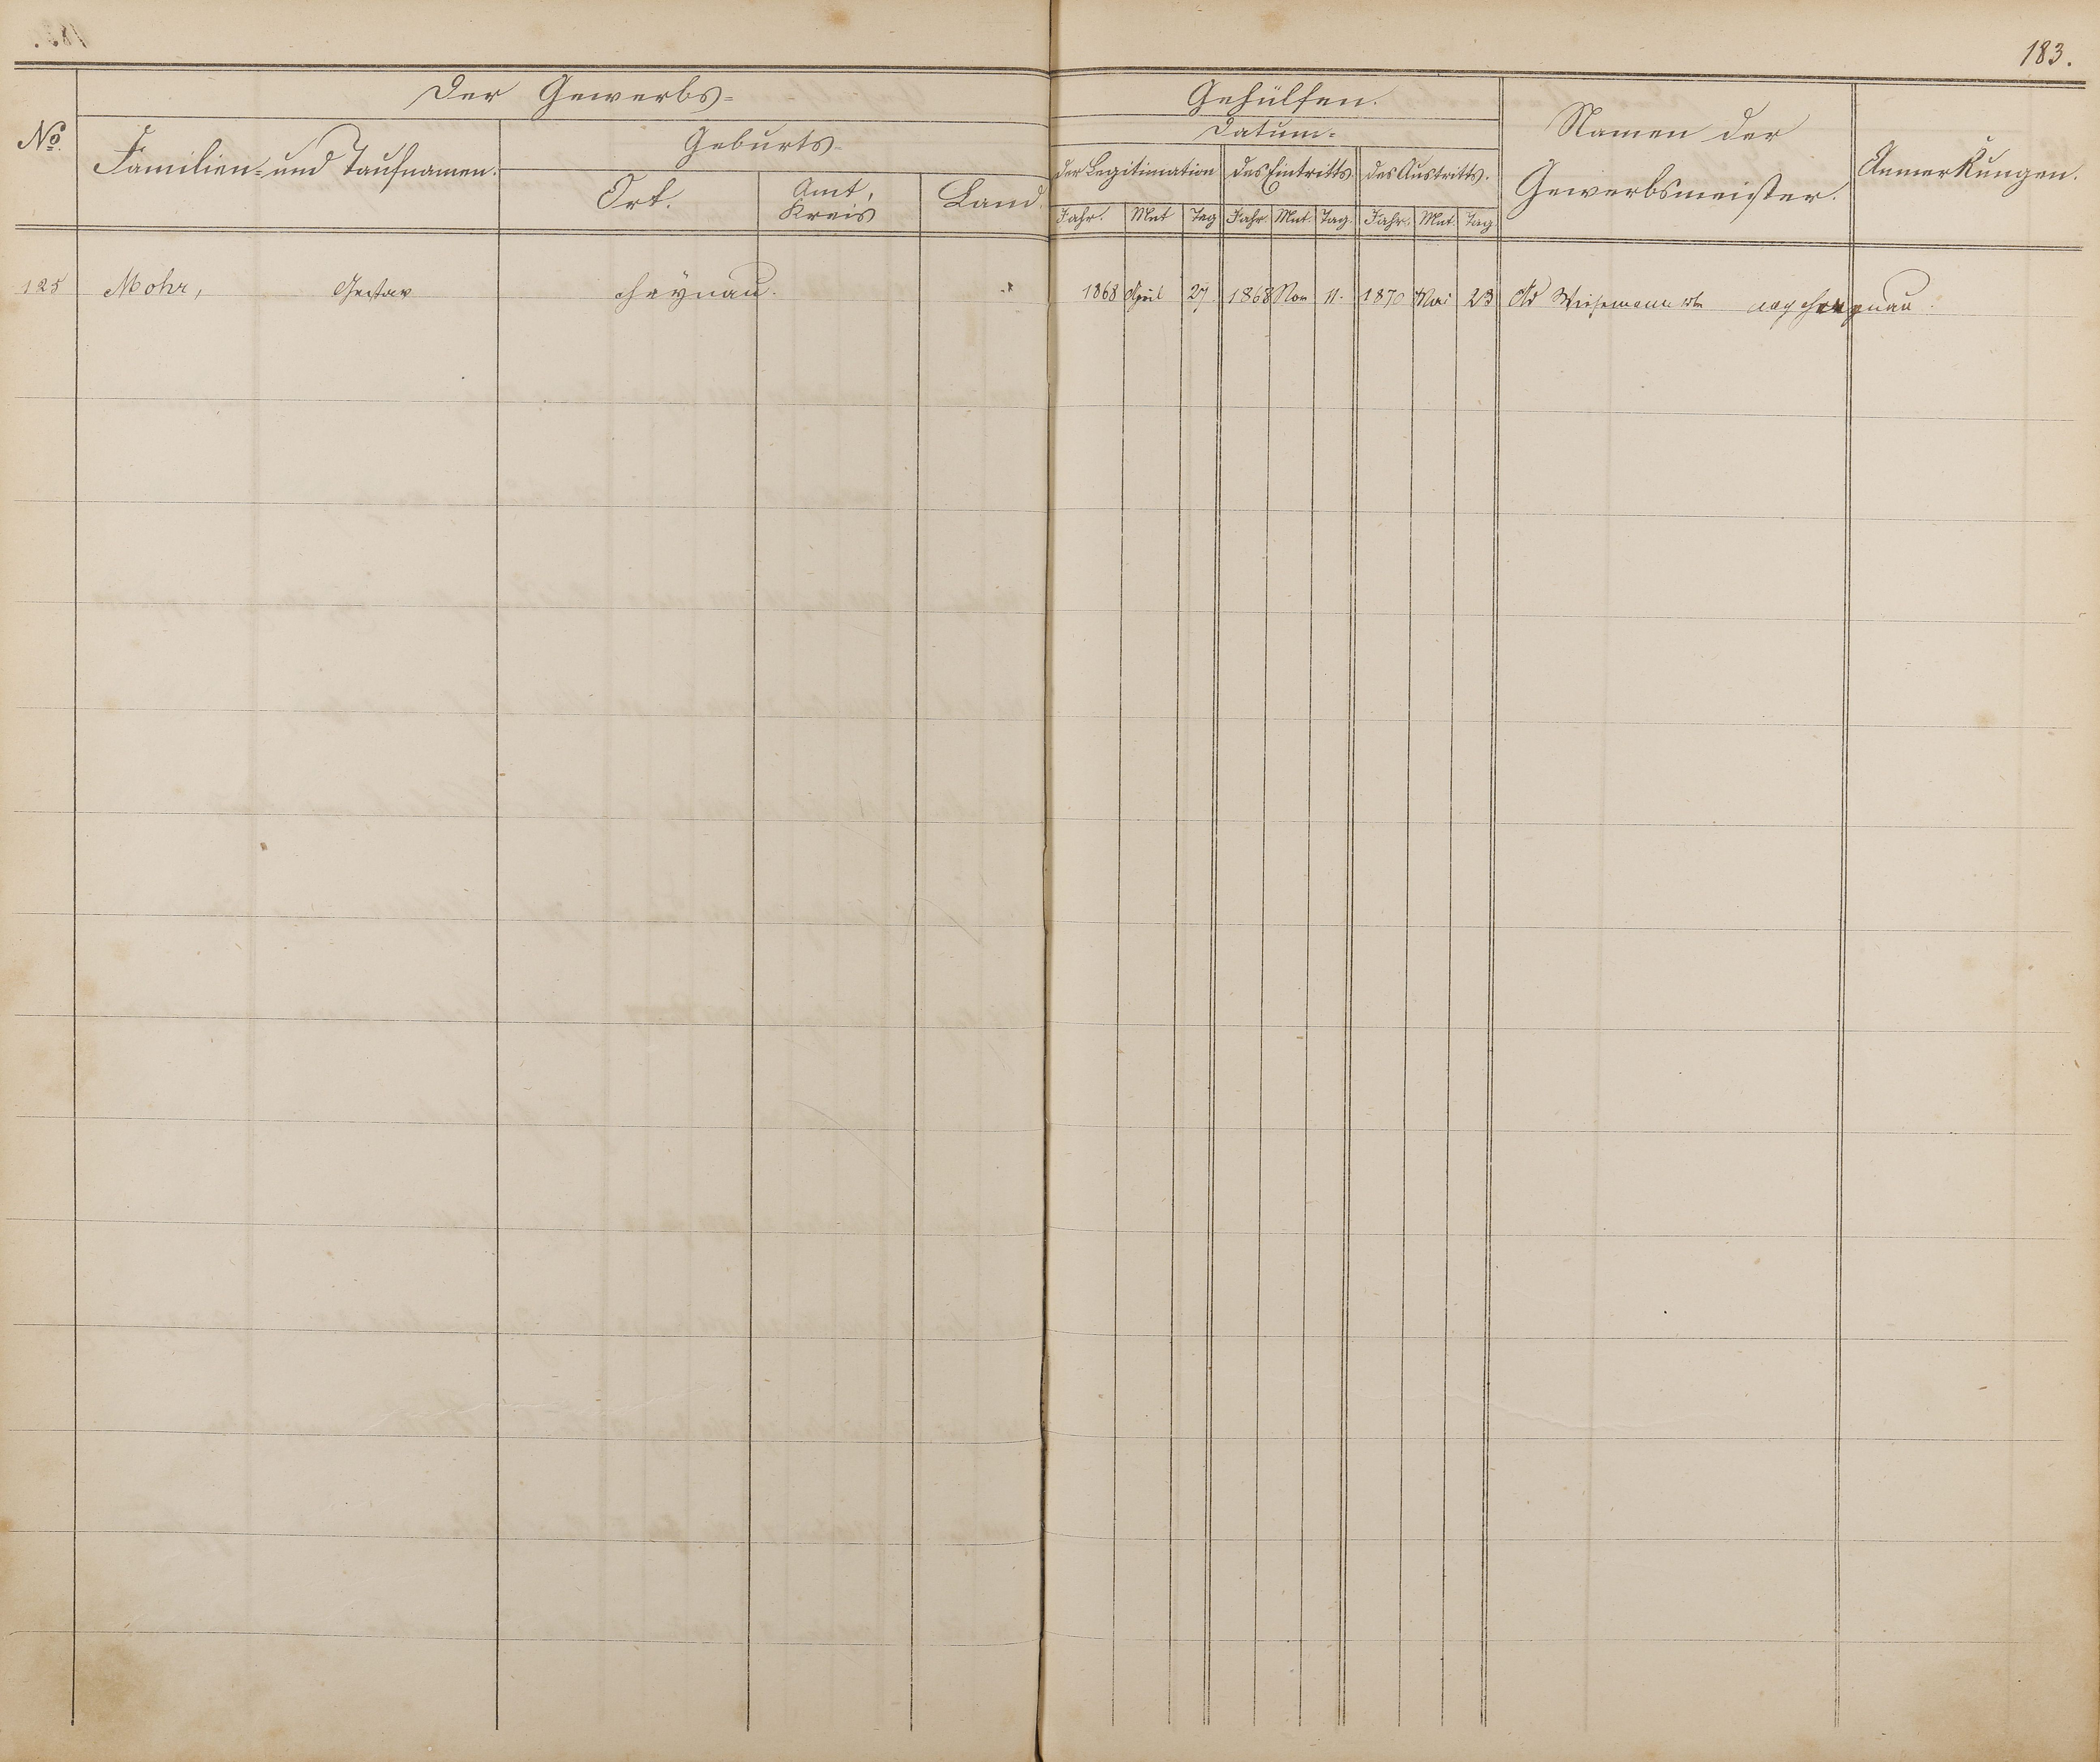 183.
Der Gewerbs-
Gehülfen.
No.
Familien- und Taufnamen.
Geburts-
Ort.
Amt, Kreis
Land.
Datum.
der Legitimation
des Eintritts
des Austritts.
Jahr. Mnt Tag Jahr. Mnt. Tag. Jahr. Mnt. Tag.
Namen der
Gewerbsmeister.
Anmerkungen.
125 Mohr, Gustav Haynau. 1868 April 27. 1868 Nov 11. 1870 Mai 23 Ad Wiesemann nach Haynau.